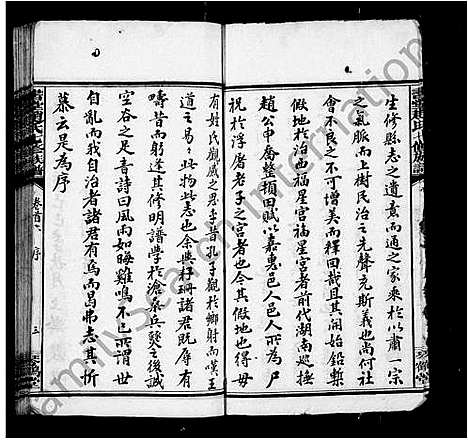 生修縣志之遺意而通之家乘於以肅一宗
之氣脈而上樹民治之先聲充斯義也尚何社
會不良之不可增美而釋回哉且其開始鉛槧
假地於治也福星宮福星宮者前代湖南巡撫
趙公申喬整積田賦以嘉惠邑人邑人所為尸
祝於浮屠老子之宮者也今其假地也得毋
有姓氏觀感之思乎昔孔子觀於鄉射而嘆王
道之易易此物此志也余與籽珊諸君既辱有
疇昔而躬逢其修明譜學於滄桑兵燹之後誠
空谷之足音詩曰風雨如晦雞鳴不已所謂世
自亂而我自治者諸君有焉而曷弗志其忻
慕云是為序
卷首 序
三
琴鶴堂
FamilySearch International